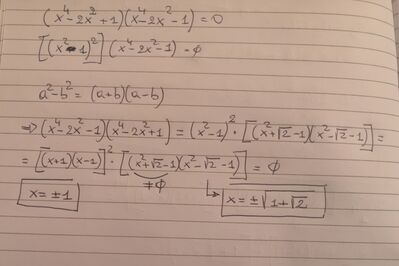 (x⁴-2x²+1)(x⁴-2x²-1)=0
[(x²-1)²](x⁴-2x²-1)=0
a²-b²=(a+b)(a-b)
⇒(x⁴-2x²-1)(x⁴-2x²+1)=(x²-1)²·[(x²+√2-1)(x²-√2-1)]=
=[(x+1)(x-1)]²·[(x²+√2-1)(x²-√2-1)]=0
≠0
x=±1 ↳ x=±√(1+√2)